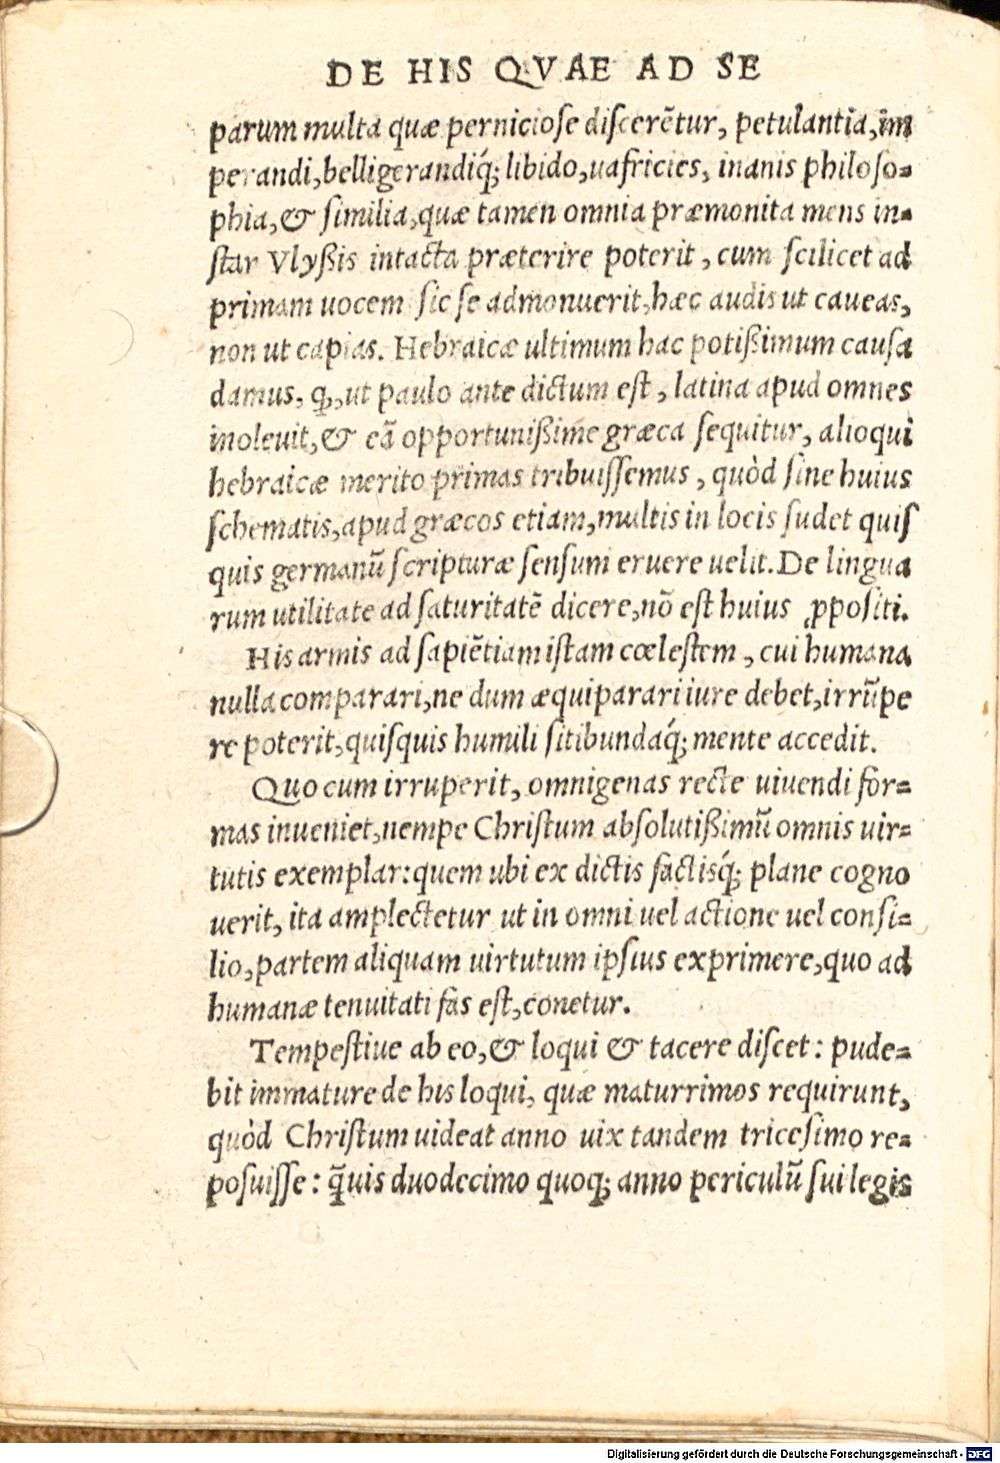 DE HIS QVAE AD SE
parum multa quæ perniciose discerẽtur, petulantia, im
perandi, belligerandiq́; libido, uafricies, inanis philoso=
phia, & similia, quæ tamen omnia præmonita mens in=
star Vlyßis intacta præterire poterit, cum scilicet ad
primam uocem sic se admonuerit, hæc audis ut caueas,
non ut capias. Hebraicæ ultimum hac potißimum causa
damus, ꝙ, ut paulo ante dictum est, latina apud omnes
inoleuit, & eã opportunißime græca sequitur, alioqui
hebraicæ merito primas tribuissemus, quòd sine huius
schematis, apud græcos etiam, multis in locis sudet quis
quis germanũ scripturæ sensum eruere uelit. De lingua
rum utilitate ad saturitatẽ dicere, nõ est huius ꝓpositi.
His armis ad sapiẽtiam istam cœlestem, cui humana
nulla comparari, ne dum æquiparari iure debet, irrũpe
re poterit, quisquis humili sitibundaq́; mente accedit.
Quo cum irruperit, omnigenas recte uiuendi for=
mas inueniet, nempe Christum absolutißimũ omnis uir=
tutis exemplar: quem ubi ex dictis factisq́; plane cogno
uerit, ita amplectetur ut in omni uel actione uel consi=
lio, partem aliquam uirtutum ipsius exprimere, quo ad
humanæ tenuitati fas est, conetur.
Tempestiue ab eo, & loqui & tacere discet: pude=
bit immature de his loqui, quæ maturrimos requirunt,
quòd Christum uideat anno uix tandem tricesimo re=
posuisse: q̃uis duodecimo quoq; anno periculũ sui legis
Digitalisierung gefördert durch die Deutsche Forschungsgemeinschaft - DFG